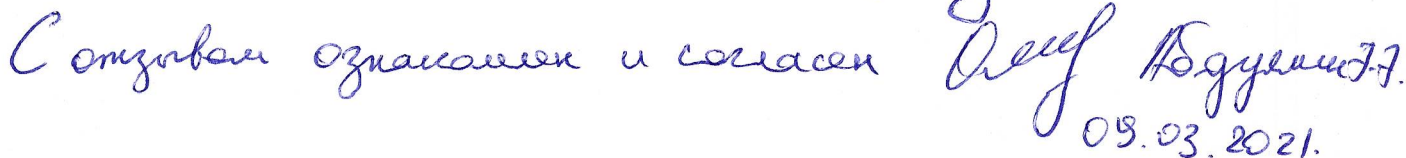 С отзывом ознакомлен и согласен Абдуллин
09.03.2021.